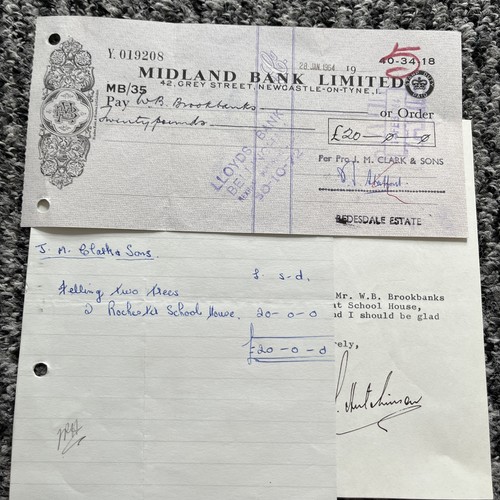 Y. 019208
28 JAN 1964 19
40-34.18
MIDLAND BANK LIMITED
42, GREY STREET, NEWCASTLE-ON-TYNE, 1.
MB/35
Pay W.B. Brookbanks or Order
Twenty pounds. £20-0-0
LLOYDS BANK
30-10-72
Per Pro J. M. CLARK & SONS
REDESDALE ESTATE
J. M. Clark & Sons.
£. s-d.
Felling two trees
Rochester School House. 20-0-0
£20-0-0
Mr. W.B. Brookbanks
School House,
I should be glad
Hutchinson